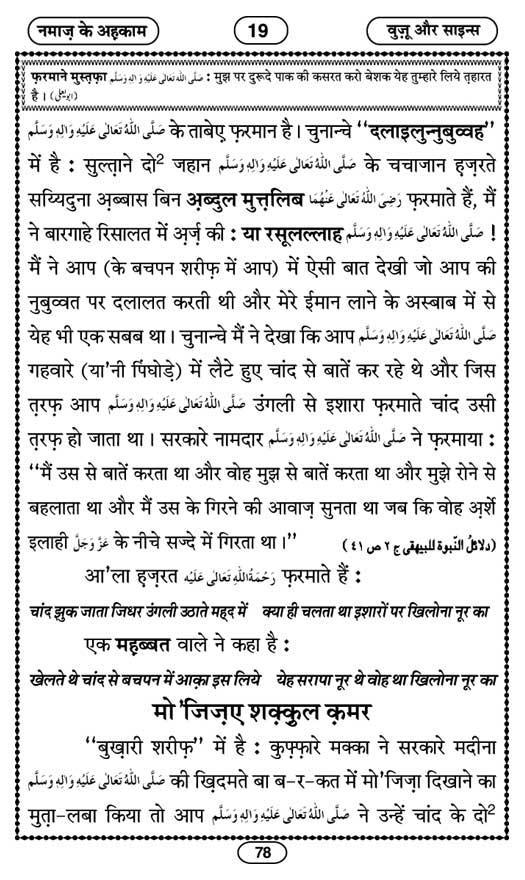 नमाज़ के अह़काम
19
वुज़ू और साइन्स
फ़रमाने मुस्त़फ़ा صَلَّى اللهُ تَعَالٰى عَلَيْهِ وَاٰلِهٖ وَسَلَّم : मुझ पर दुरूदे पाक की कसरत करो बेशक येह तुम्हारे लिये त़हारत
है । (ابو یعلی)
صَلَّى اللهُ تَعَالٰى عَلَيْهِ وَاٰلِهٖ وَسَلَّم के ताबेए फ़रमान है । चुनान्चे “दलाइलुन्नुबुव्वह”
में है : सुल्त़ाने दो² जहान صَلَّى اللهُ تَعَالٰى عَلَيْهِ وَاٰلِهٖ وَسَلَّم के चचाजान ह़ज़रते
सय्यिदुना अ़ब्बास बिन अ़ब्दुल मुत्त़लिब رَضِىَ اللهُ تَعَالٰى عَنْهُمَا फ़रमाते हैं, मैं
ने बारगाहे रिसालत में अ़र्ज़ की : या रसूलल्लाह صَلَّى اللهُ تَعَالٰى عَلَيْهِ وَاٰلِهٖ وَسَلَّم !
मैं ने आप (के बचपन शरीफ़ में आप) में ऐसी बात देखी जो आप की
नुबुव्वत पर दलालत करती थी और मेरे ईमान लाने के अस्बाब में से
येह भी एक सबब था । चुनान्चे मैं ने देखा कि आप صَلَّى اللهُ تَعَالٰى عَلَيْهِ وَاٰلِهٖ وَسَلَّم
गहवारे (या'नी पिंघोड़े) में लैटे हुए चांद से बातें कर रहे थे और जिस
त़रफ़ आप صَلَّى اللهُ تَعَالٰى عَلَيْهِ وَاٰلِهٖ وَسَلَّم उंगली से इशारा फ़रमाते चांद उसी
त़रफ़ हो जाता था । सरकारे नामदार صَلَّى اللهُ تَعَالٰى عَلَيْهِ وَاٰلِهٖ وَسَلَّم ने फ़रमाया :
“मैं उस से बातें करता था और वोह मुझ से बातें करता था और मुझे रोने से
बहलाता था और मैं उस के गिरने की आवाज़ सुनता था जब कि वोह अ़र्शे
इलाही عَزَّ وَجَلَّ के नीचे सज्दे में गिरता था ।” (دلائلُ النّبوۃ للبیهقی ج ۲ ص ۴۱)
आ'ला ह़ज़रत رَحْمَةُ اللهِ تَعَالٰى عَلَيْه फ़रमाते हैं :
चांद झुक जाता जिधर उंगली उठाते मह्द में क्या ही चलता था इशारों पर खिलोना नूर का
एक मह़ब्बत वाले ने कहा है :
खेलते थे चांद से बचपन में आक़ा इस लिये येह सरापा नूर थे वोह था खिलोना नूर का
मो'जिज़ए शक़्क़ुल क़मर
“बुख़ारी शरीफ़” में है : कुफ़्फ़ारे मक्का ने सरकारे मदीना
صَلَّى اللهُ تَعَالٰى عَلَيْهِ وَاٰلِهٖ وَسَلَّم की ख़िदमते बा ब-र-कत में मो'जिज़ा दिखाने का
मुता-लबा किया तो आप صَلَّى اللهُ تَعَالٰى عَلَيْهِ وَاٰلِهٖ وَسَلَّم ने उन्हें चांद के दो²
78